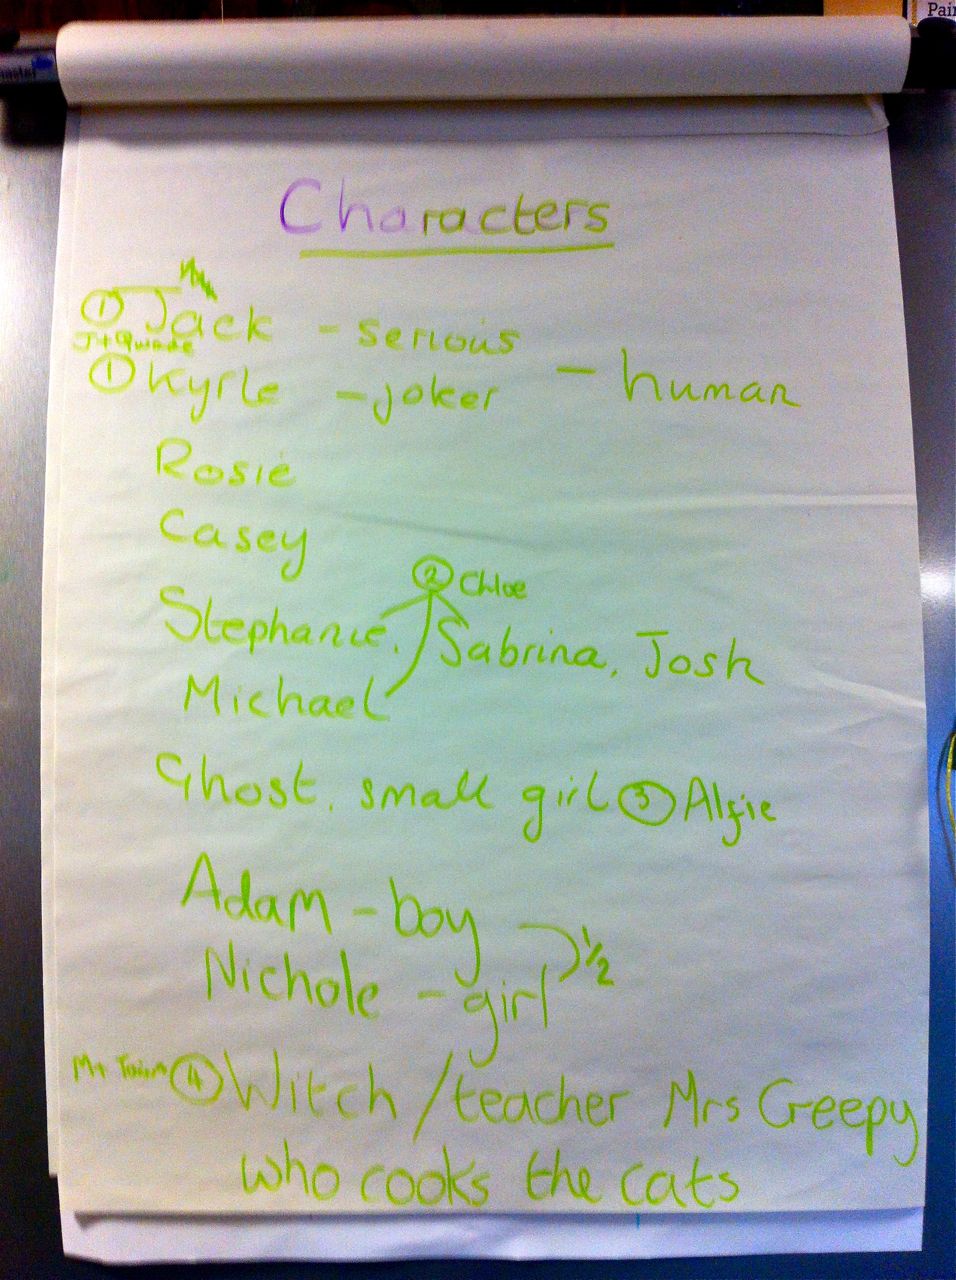 Pain
master
Characters
① Jack - serious
J + Qwade
① Kyrle - joker - human
Rosie
Casey
② Chloe
Stephanie, Sabrina, Josh
Michael
Ghost, small girl ③ Alfie
Adam - boy
1/2
Nichole - girl
④ Witch / teacher Mrs Creepy
who cooks the cats